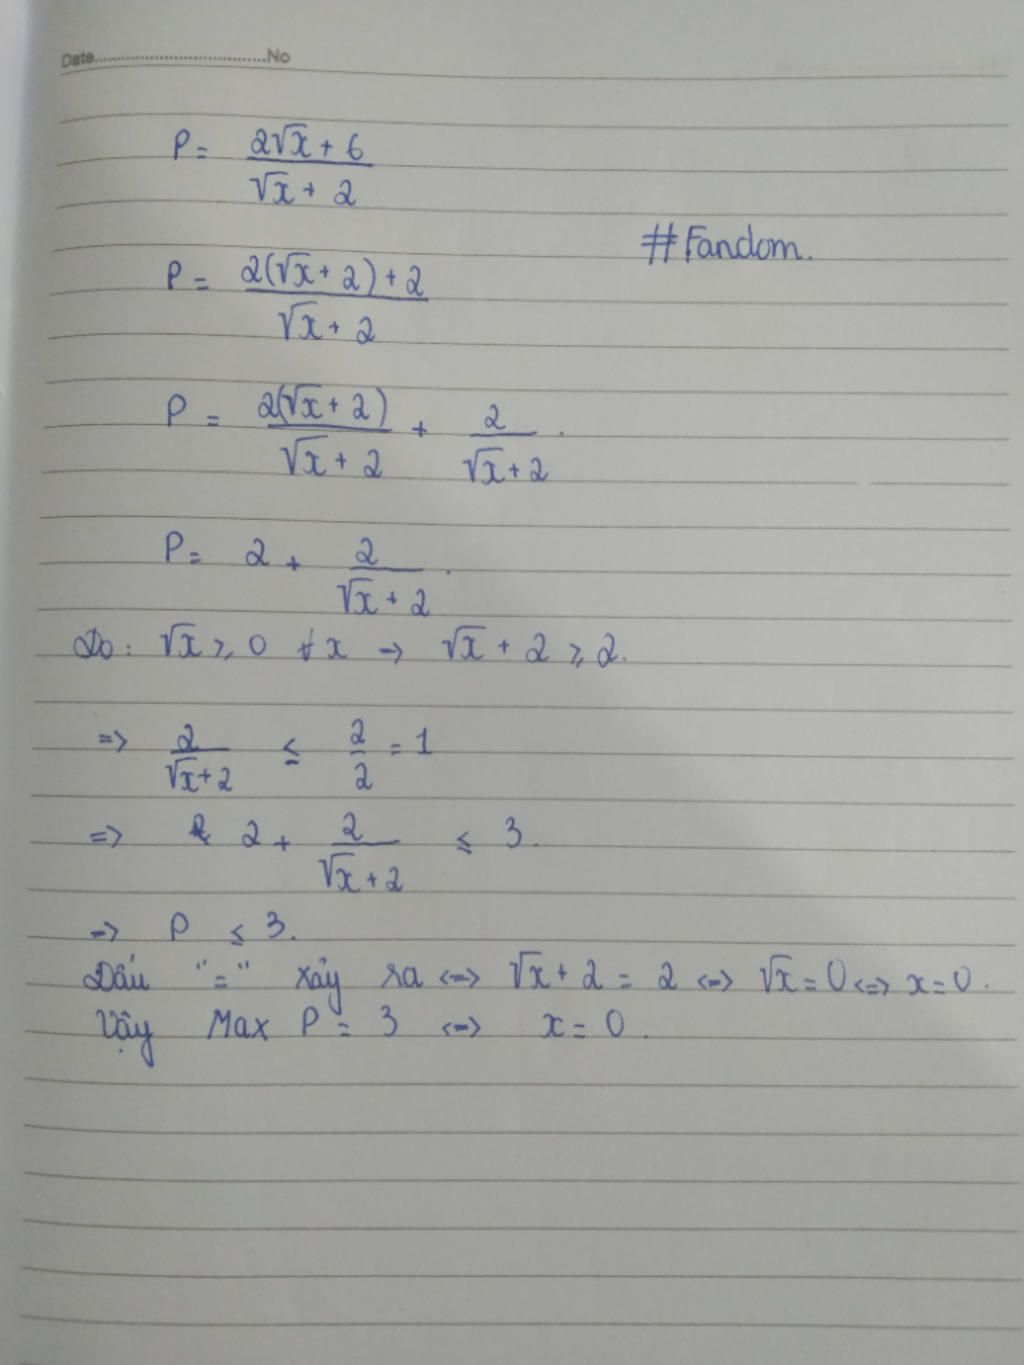 Date..................................No
P = (2√x + 6)/(√x + 2)
#Fandom.
P = (2(√x + 2) + 2)/(√x + 2)
P = (2(√x + 2))/(√x + 2) + 2/(√x + 2).
P = 2 + 2/(√x + 2).
Do: √x ≥ 0 ∀x → √x + 2 ≥ 2.
=> 2/(√x + 2) ≤ 2/2 = 1
=> 2 + 2/(√x + 2) ≤ 3.
=> P ≤ 3.
Dấu "=" xảy ra <=> √x + 2 = 2 <=> √x = 0 <=> x = 0.
Vậy Max P = 3 <=> x = 0.